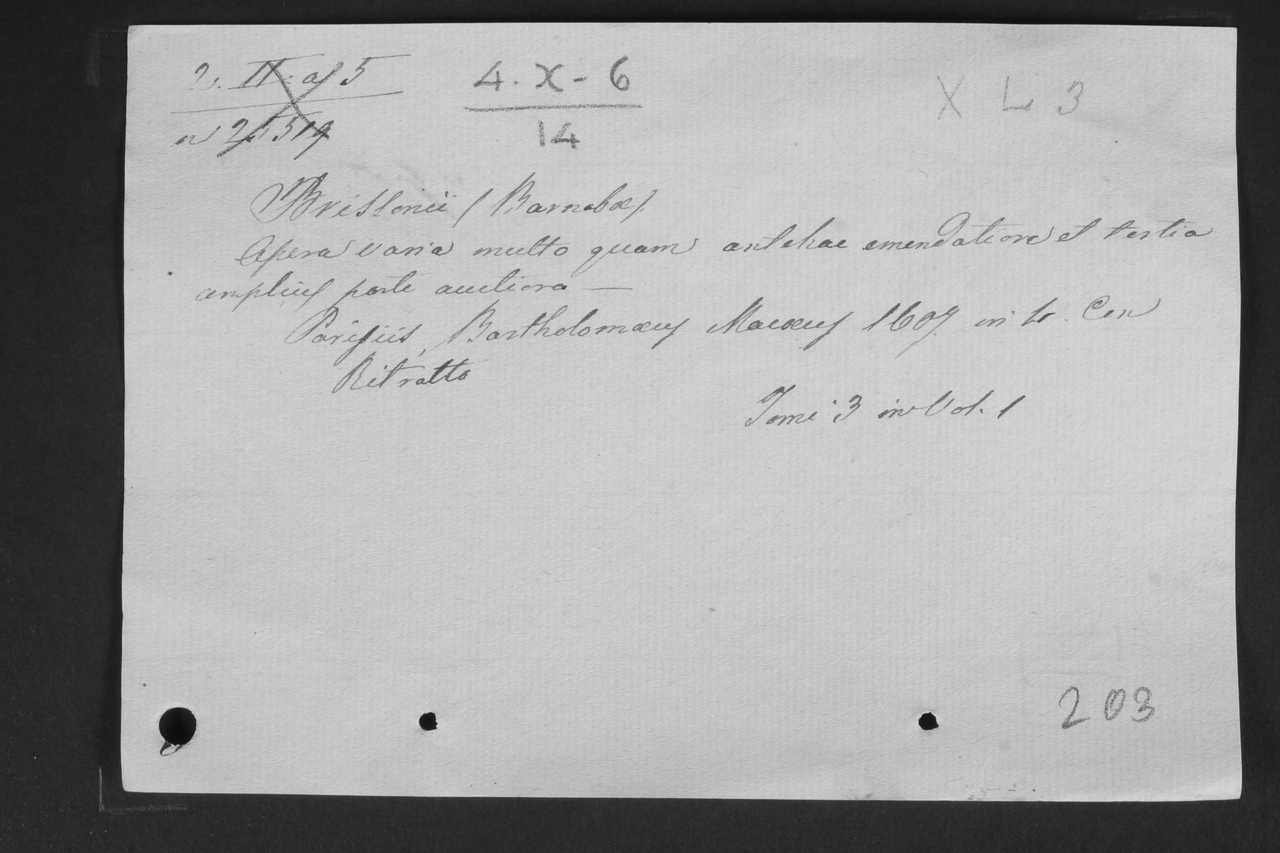 4. X - 6
14
X L 3
Brissonii (Barnabæ)
Opera varia multo quam antehac emendatiora et tertia
amplius parte auctiora —
Parisiis, Bartholomæus Macæus 1607. in 4. Con
Ritratto
Tomi 3 in Vol. 1
203